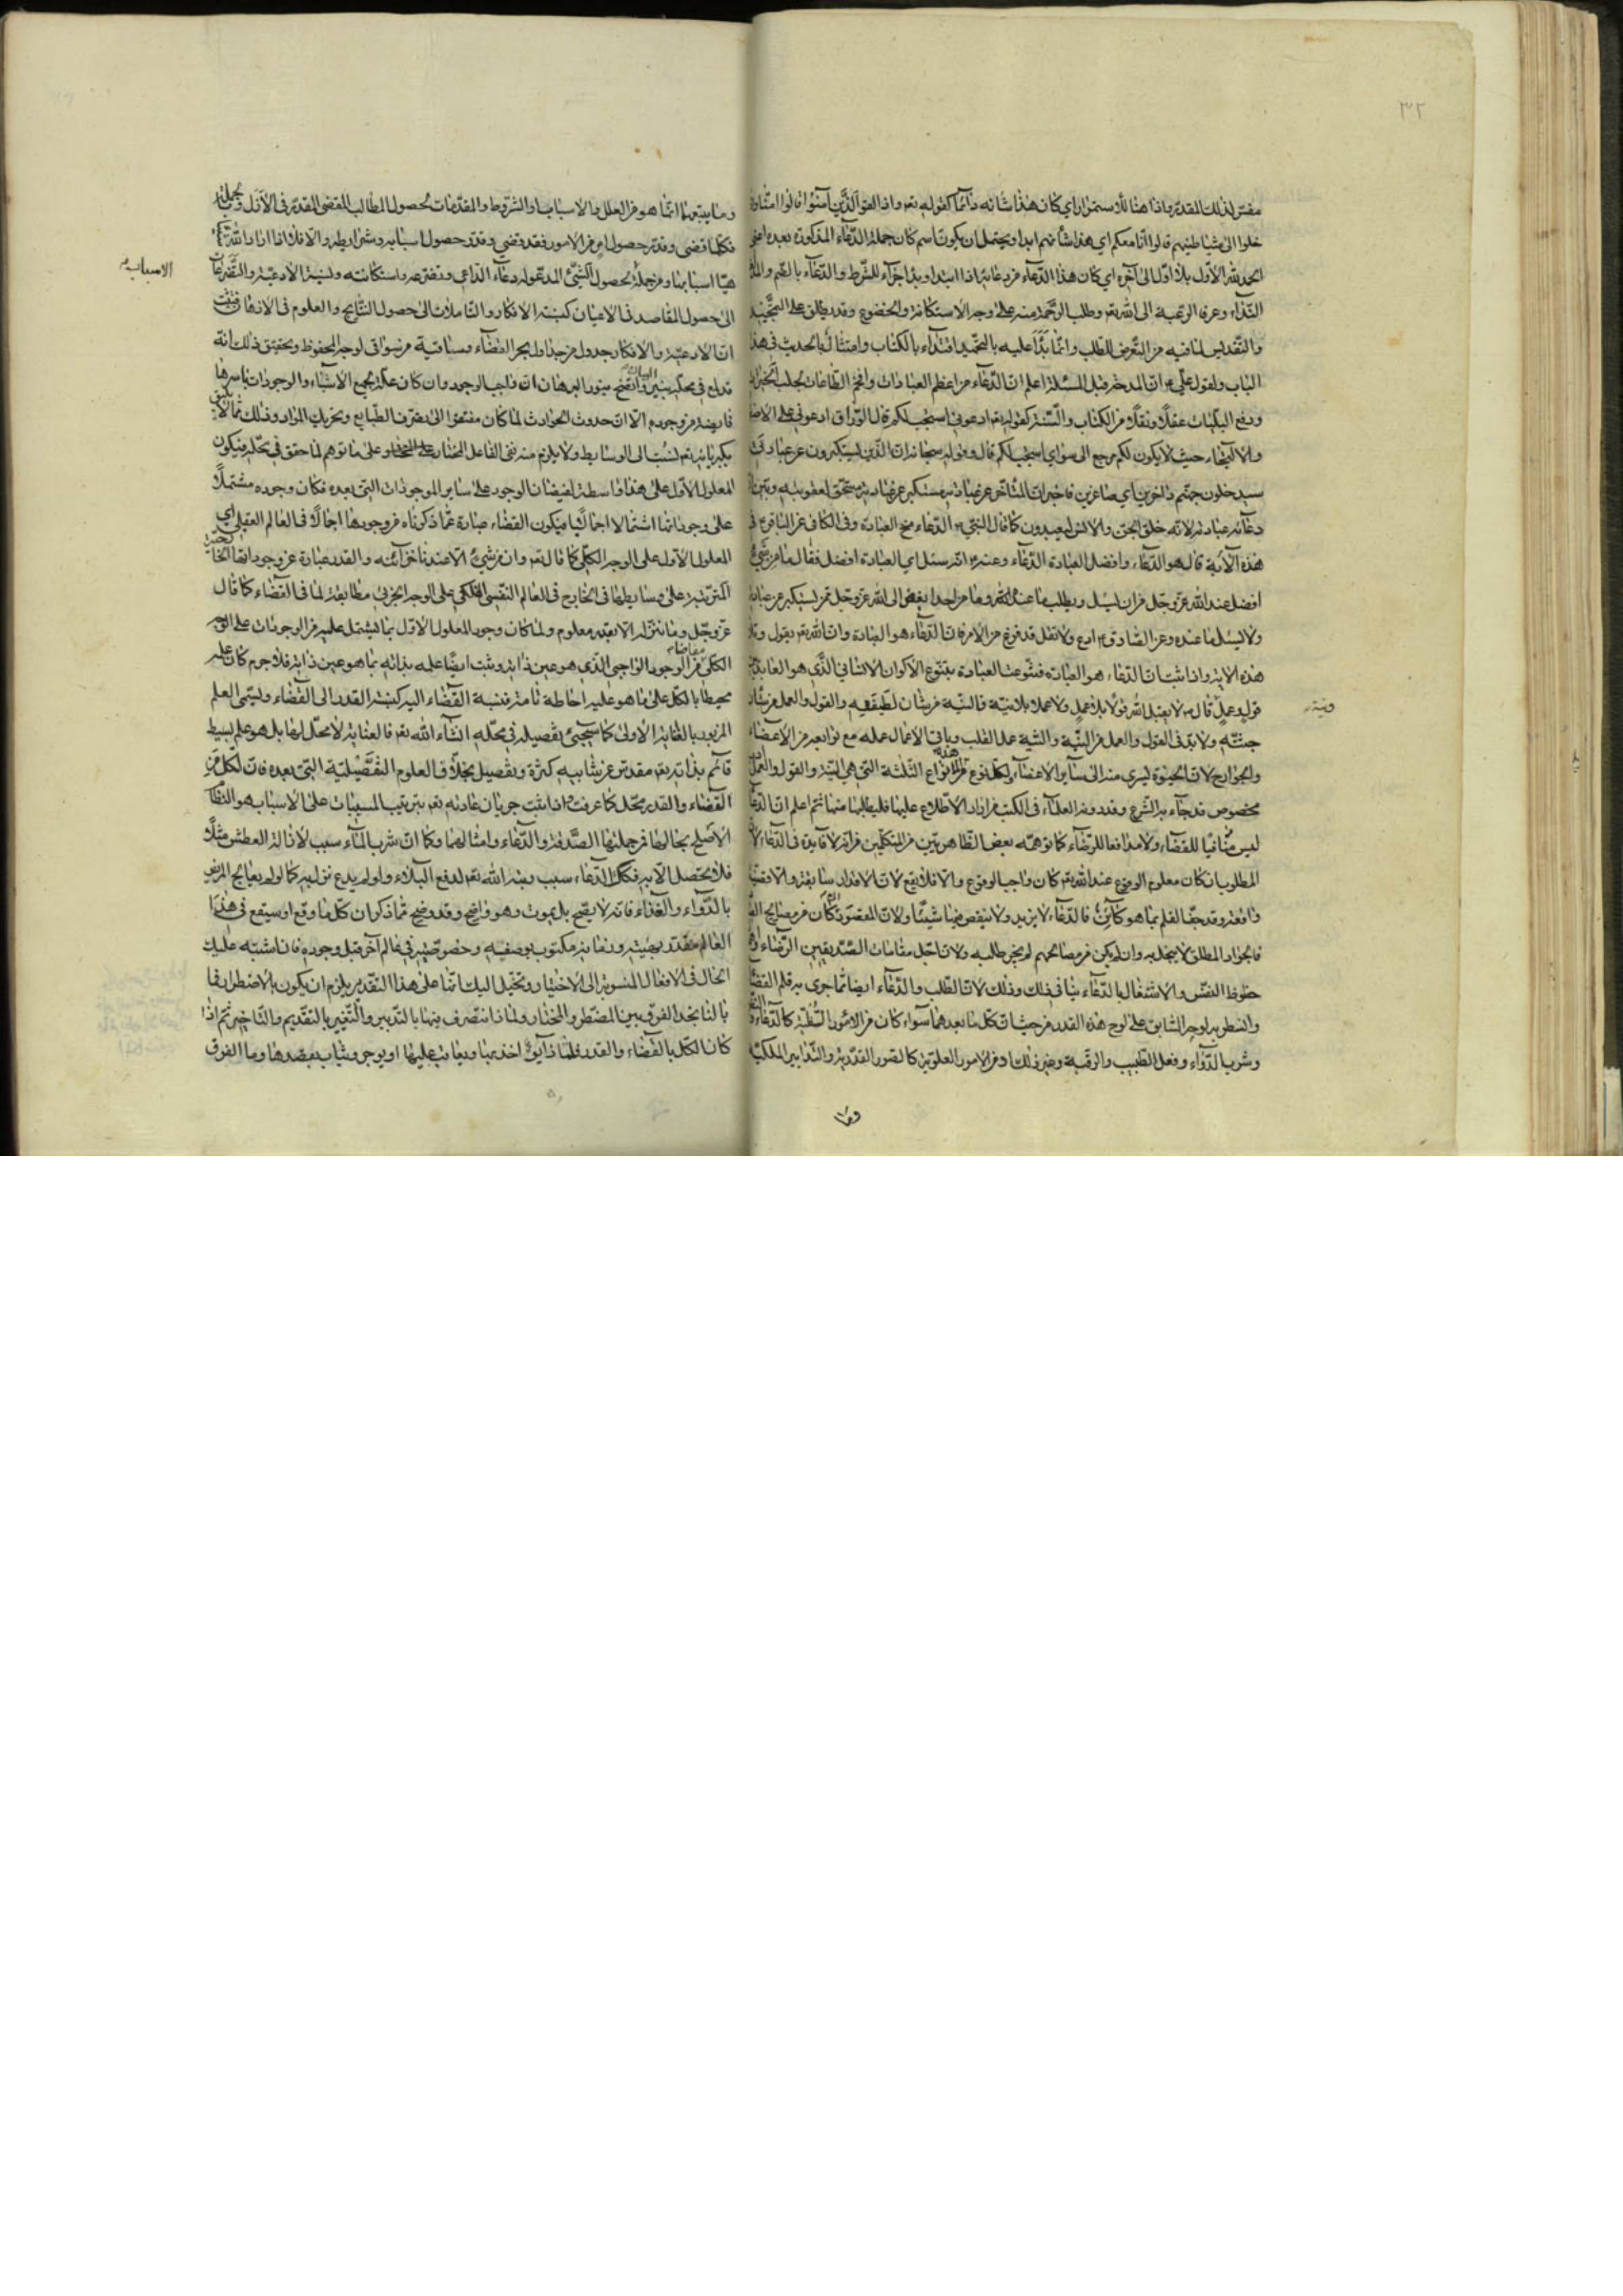 ٣٢
مفسّر لذلك المقدّر واذا هنا للاستمرار اي كان هذا شانه دائما كقوله تع واذا لقوا الّذين آمنوا قالوا امنّا واذا
خلوا الى شياطينهم قالوا انا معكم اي هذا شأنهم ابدا ويحتمل ان يكون اسم كان جملة الدّعاء المذكورة بعده اعني
الحمد لله الاوّل بلا اوّل الى آخره اي كان هذا الدّعاء من دعائه اذا ابتدا وبدا جزاء للشّرط والدّعاء بالضّم والمدّ
النّداء وعرفا الرّغبة الى الله تع وطلب الرّحمة منه على وجه الاستكانة والخضوع وقد يطلق على التّمجيد
والتّقديس لما فيه من التّعرض للطلب وانّما بدأ عليه بالتّحميد اقتداء بالكتاب وامتثالا بالحديث في هذا
الباب ولقول علي ع انّ المدحة قبل المسئلة اعلم انّ الدّعاء من اعظم العبادات وافخم الطّاعات يجلب الخيرات
ودفع البليّات عقلًا ونقلًا من الكتاب والسّنّة كقوله تع ادعوني استجب لكم قال الورّاق ادعوني على الاضطرار
والالتجاء حيث لا يكون لكم مرجع الى سواي استجب لكم قال وقوله سبحانه انّ الّذين يستكبرون عن عبادتي
سيدخلون جهنّم داخرين اي صاغرين فاخبر انّ المتأخر عن عبادته مستكبر عن عبادته مستحق لعقوبته وبيّن انّ
دعائه عبادته لانّه خلق الجن والانس ليعبدون كما قال النبي ص الدّعاء مخ العبادة وفي الكافي عن الباقر ع في
هذه الآية قال هو الدّعاء وافضل العبادة الدّعاء وعنه ع انّه سئل اي العبادة افضل فقال ما من شيء
افضل عند الله عزّ وجلّ من ان يسئل ويطلب ما عنده وما من احد ابغض الى الله عزّ وجلّ ممّن يستكبر عن عبادته
ولا يسئل ما عنده وعن الصّادق ع ادع ولا تقل قد فرغ من الامر فانّ الدّعاء هو العبادة وانّ الله تع يقول وتلا
هذه الاية واذا ثبت انّ الدّعاء هو العبادة فتنوعت العبادة بتنوّع الاكوان الانساني الّذي هو العابد بنيّة
قول وعمل قال ص لا يقبل الله قولًا بلا عمل ولا عملا بلا نيّة فالنيّة من شأن لطيفته والقول والعمل من شأن
جثّته ولا بدّ في القول والعمل من النيّة والنية عمل القلب وباقي الاعمال عمله مع توابعه من الاعضاء
والجوارح لانّ الحيوة ليسرى منه الى سائر الاعضاء ولكل نوع من هذه الانواع الثلثة التي هي النيّة والقول والعمل
مخصوص قد جاء به الشّرع وقد دونه العلماء في الكتب من اراد الاطّلاع عليها فليطلبها منها ثمّ اعلم انّ الدّعاء
ليس منافيا للقضاء ولا مدافعا للرّضاء كما توهّمه بعض الظّاهريّين من المتكلّمين من انّه لا فايدة في الدّعاء لانّ
المطلوب ان كان معلوم الوقوع عند الله تع كان واجب الوقوع والّا فلا يقع لانّ الاقدار سابقة والاقضية
واقعة وقد جفّ القلم بما هو كائن فالدّعاء لا يزيد ولا ينقص فيها شيئًا ولانّ المقصود ان كان من مصالح العبد
فالجواد المطلق لا يبخل به وان لم يكن من مصالحهم لم يجز طلبه ولانّ اجلّ مقامات الصّدّيقين الرّضاء واهمال
حظوظ النفس والاشتغال بالدّعاء ينافي ذلك وذلك لانّ الطّلب والدّعاء ايضا ممّا جرى به قلم القضاء
وانسطر به لوح السّابق على لوح هذه القدر من حيث انّ كل ما يعدهما سواء كان من الامور السّفليّة كالدّعاء
وشرب الدّواء وفعل الطّبيب والرقية وغير ذلك او من الامور العلويّة كالصّور القدريّة والتّدابير الملكيّة
ونيّة
وما
وما يتبعها انّما هو من العلل والاسباب والشّروط والمقدّمات لحصول المطالب المقضي المقدّر في الازل وبالجملة
فكلّما قضى وقدّر حصول امر من الامور فقد قضى وقدّر حصول اسبابه وشرايطه والّا فلا اذا اراد الله شيئا
هيّأ اسبابها ومن جملة لحصول الشّيء المدعو له دعاء الدّاعي وتضرّعه واستكانته ونسبة الادعيّة والتّضرعات
الى حصول المقاصد في الاعيان كنسبة الافكار والتّأمّلات الى حصول النّتائج والعلوم في الاذهان فثبت
انّ الادعيّة والافكار جدول من جداول بحر القضاء وساقية من سواقي لوحه المحفوظ وتحقيق ذلك انّه
قد لمع في محلّه بتبيين البيان واتضح بنور البرهان انّ واجب الوجود وان كان علّة لجميع الاشياء والوجودات باسرها
فايضة من وجوده الّا انّ حدوث الحوادث لمّا كان مفتقرا الى تصرّف الطّبايع وتحريك المواد وذلك ممّا لا يليق
بكبريائه تع لنسبت الى الوسايط ولا يلزم منه نفي الفاعل المختار على ما توهم لما حقق في محلّه فيكون
المعلول الاوّل على هذا واسطة لفيضان الوجود على ساير الموجودات التي بعده فكان وجوده مشتملًا
على وجوداتها اشتمالا اجماليّا فيكون القضاء عبارة عمّا ذكرناه من وجودها اجمالًا في العالم العقلي اي
المعلول الاوّل على الوجه الكلّي كما قال تع وان من شيء الّا عندنا خزائنه والقدر عبارة عن وجوداتها الخارجيّة
المترتّبة على وسايطها في الخارج في العالم النّفسي الفلكي على الوجه الجزئي مطابقة لما في القضاء كما قال
عزّ وجلّ وما ننزّله الّا بقدر معلوم ولمّا كان وجود المعلول الاوّل بما يشتمل عليه من الوجودات على الوجه
الكلّي مفاضا من الوجود الواجبي الّذي هو عين ذاته وثبت ايضًا علمه بذاته بما هو عين ذاته فلا جرم كان علمه
محيطا بالكلّ على ما هو عليه احاطة تامّة فنسبة القضاء اليه كنسبة القدر الى القضاء وليسمى العلم
المزبور بالعناية الاولى كما سيجيئ تفصيله في محلّه انشاء الله تع فالعناية لا محلّ لها بل هو علم بسيط
قائم بذاته تع مقدس عن شائبه كثرة وتفصيل بخلاف العلوم التفصيليّة التي بعده فانّ لكلّ من
القضاء والقدر محلّ كما عرفت واذا ثبت جريان عادته تع بترتيب المسبّبات على الاسباب هو النّظام
الاصلح بحالها من جملتها الصّدقة والدّعاء وامثالهما وكما انّ شرب الماء سبب لازالة العطش مثلًا
فلا يحصل الّا به فكذلك الدّعاء سبب رتّبه الله تع لدفع البلاء ولو لم يدع نزل به كما لو لم يعالج المريض
بالدّواء والغذاء فانّه لا يصحّ بل يموت وهو واضح وقد وضح ممّا ذكر ان كلّ ما وقع او سيقع في هذا
العالم مقدّر بهيئته وزمانه مكتوب بوصفه وخصوصيّته في عالم آخر قبل وجوده فان اشتبه عليك
الحال في الافعال المنسوبة الى الاختيار وتخيّل اليك انّها على هذا التقدير يلزم ان يكون بالاضطرار فما
بالنا نجد الفرق بين المضطر والمختار ولماذا نتصرف فيها بالتّدبير والتّغيير بالتقديم والتّأخير ثمّ اذا
كان الكلّ بالقضاء والقدر فلماذا يؤخذ بها ويعاقب عليها او يوجر ويثاب بقصدها وما الفرق
الاسبابه